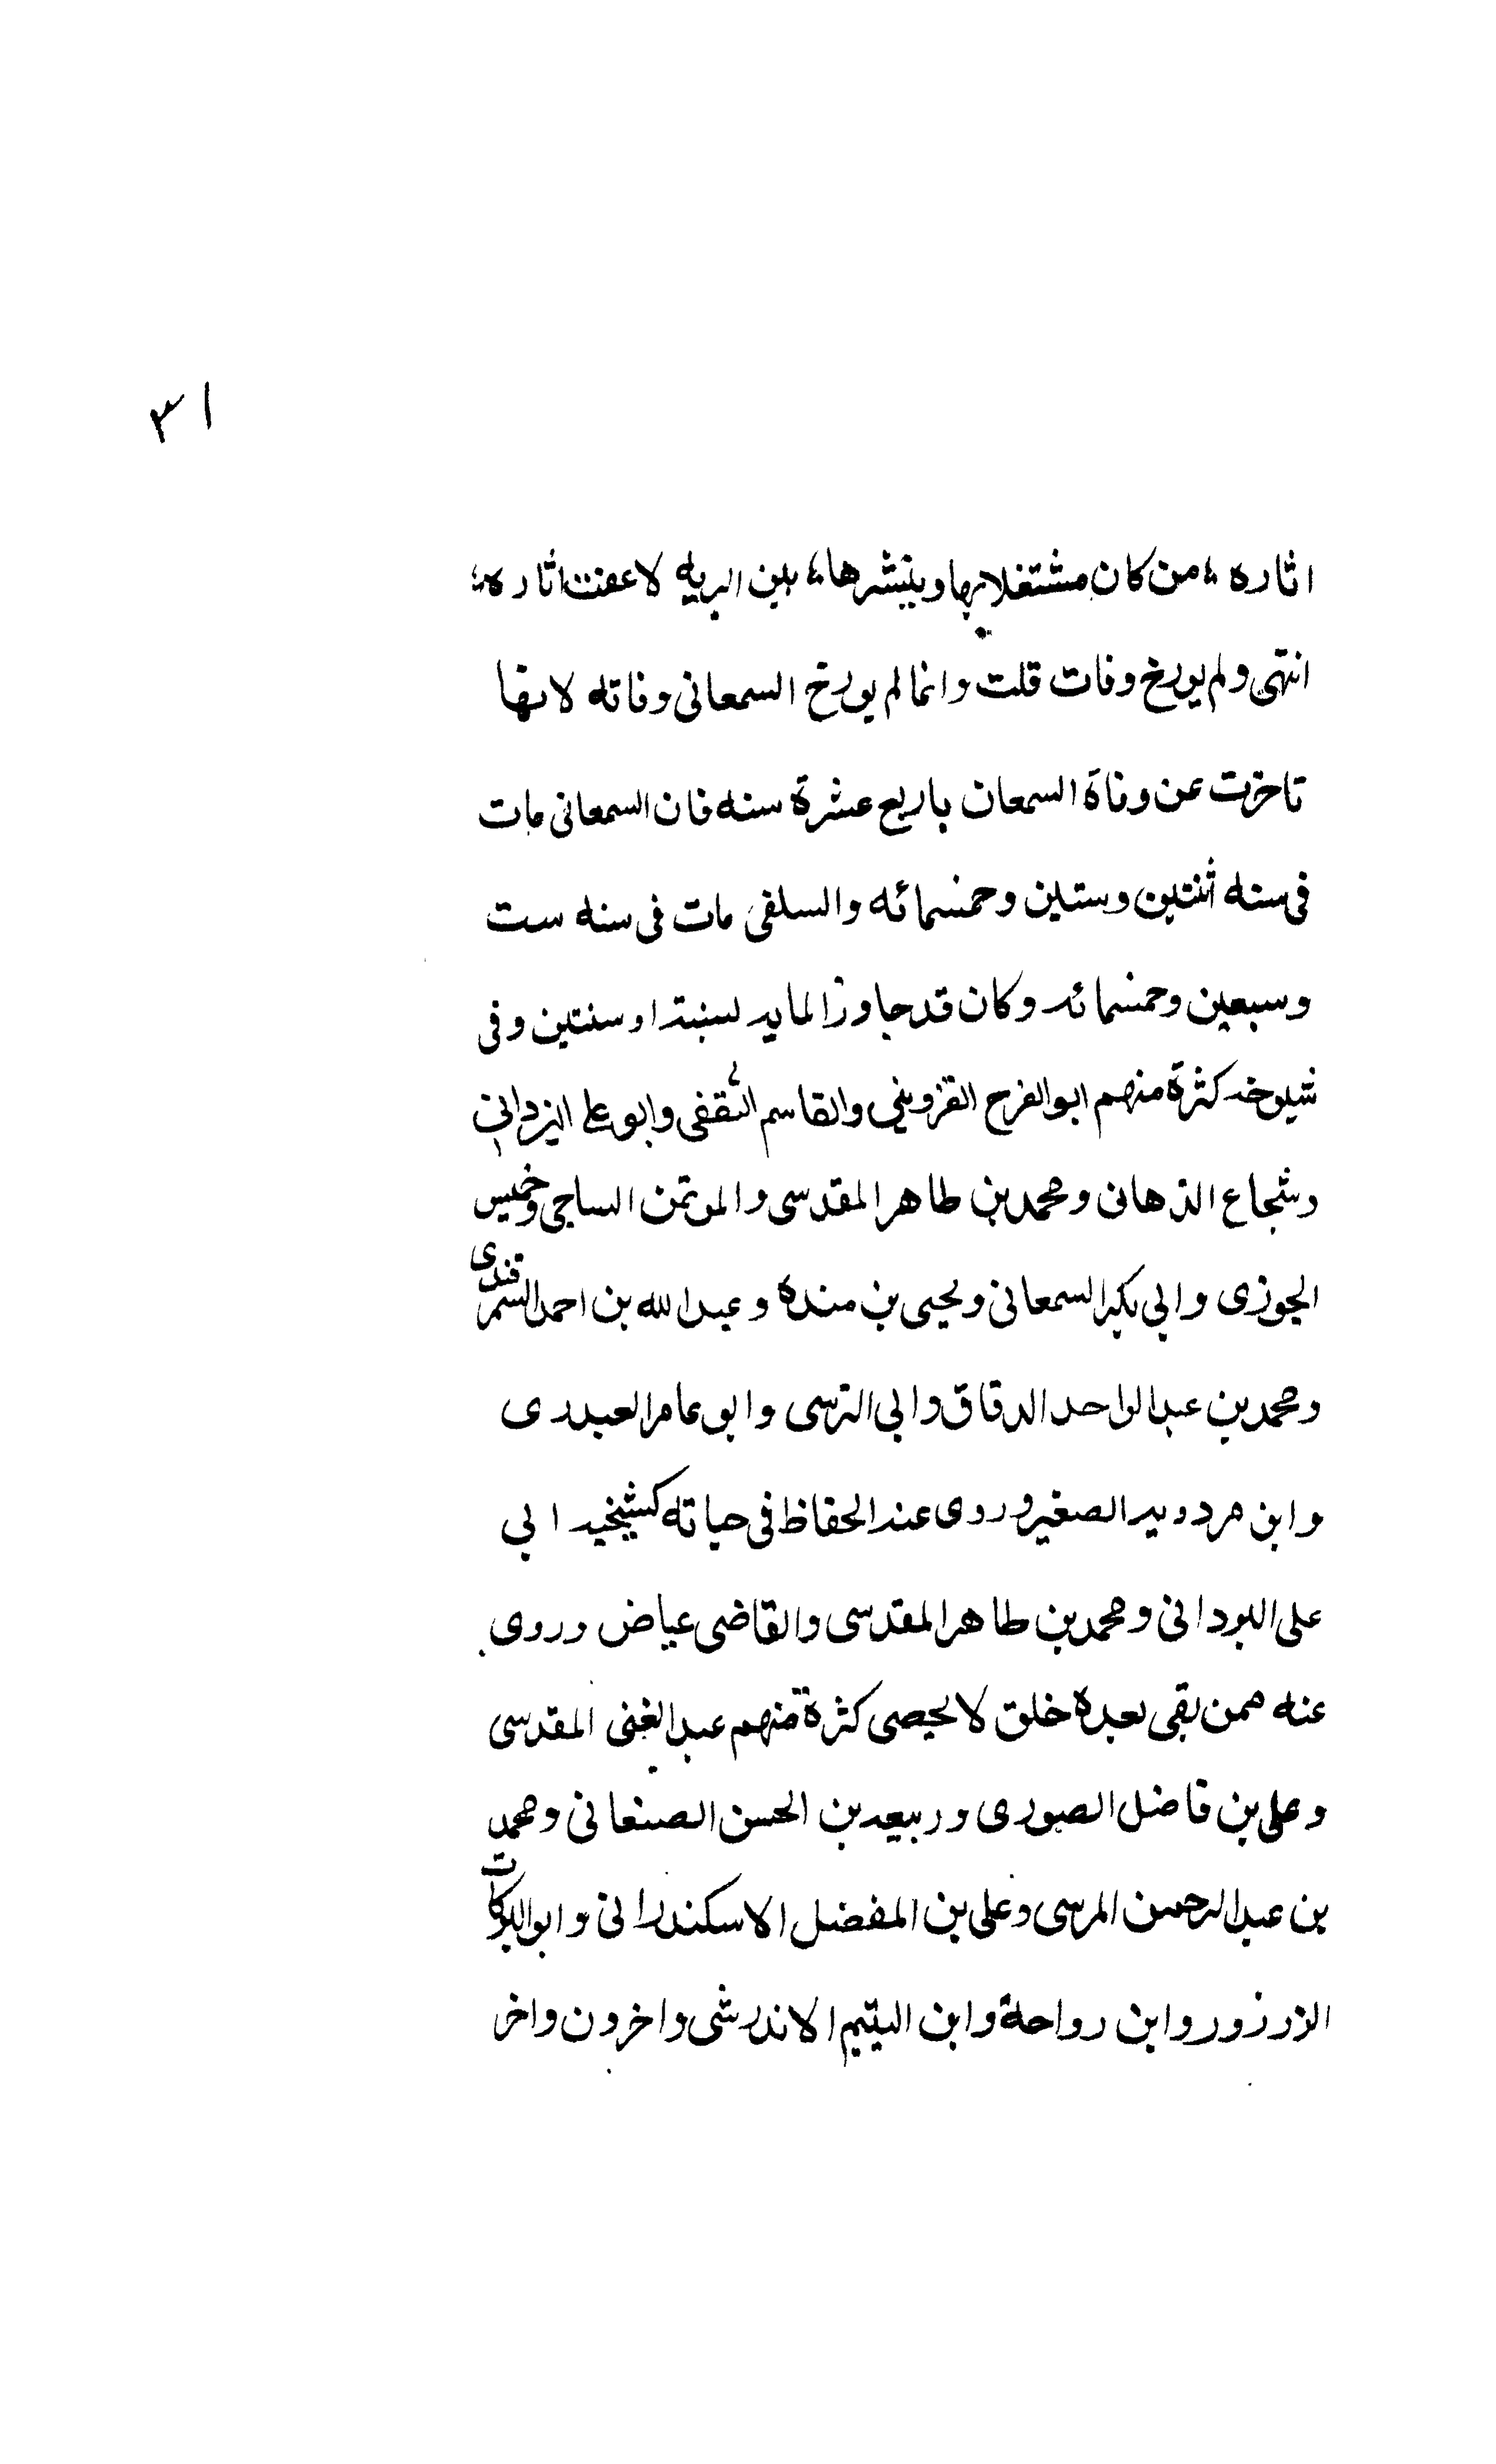 ١٣
اثاره ؛ من كان مشتغلا بها وبنشرها ؛ بين البريه لا عفت اثاره ؛
انتهى ولم يورخ وفات قلت وانما لم يورخ السمعانى وفاته لانها
تاخرت عن وفاة السمعان باربع عشرة سنه فان السمعانى مات
فى سنه اثنتين وستين وخمسمائه والسلفى مات فى سنه ست
وسبعين وخمسمائه وكان قد جاوز المايه بسنة او سنتين وفى
شيوخه كثرة منهم ابو الفرج القزوينى والقاسم الثقفى وابو على اليزدانى
وشجاع الذهانى ومحمد بن طاهر المقدسى والموتمن الساجى وخميس
الجوزى وابى بكر السمعانى ويحيى بن منده وعبد الله بن احمد السمرقندى
ومحمد بن عبد الواحد الدقاق وابى الترسى وابو عامر العبدرى
وابن مردويه الصغير وروى عنه الحفاظ فى حياته كشيخيه ابى
على البردانى ومحمد بن طاهر المقدسى والقاضى عياض وروى
عنه ممن بقى بعده خلق لا يحصى كثرة منهم عبد الغنى المقدسى
وعلى بن فاضل الصورى وربيعه بن الحسن الصنعانى ومحمد
بن عبد الرحمن المرسى وعلى بن المفضل الاسكندرانى وابو البركات
الزرزور وابن رواحة وابن اليتيم الاندرشى واخرون واخر